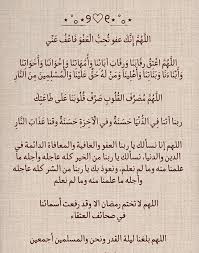 ⋆˚｡⋆୨♡୧⋆˚｡⋆
اللَّهُمَّ إِنَّكَ عَفُوٌّ تُحِبُّ الْعَفْوَ فَاعْفُ عَنِّي
اللَّهُمَّ اعْتِقْ رِقَابَنَا وَرِقَابَ آبَائِنَا وَأُمَّهَاتِنَا وَإِخْوَانِنَا وَأَخَوَاتِنَا
وَأَبْنَاءَنَا وَبَنَاتِنَا وَأَهْلِينَا وَمَنْ لَهُ حَقٌّ عَلَيْنَا وَالْمُسْلِمِينَ مِنَ النَّارِ
اللَّهُمَّ مُصَرِّفَ الْقُلُوبِ صَرِّفْ قُلُوبَنَا عَلَى طَاعَتِكَ
ربنا آتنا في الدُّنْيَا حَسَنَةً وفي الْآخِرَةِ حَسَنَةً وقنا عَذَابَ النَّارِ
اللهم إنا نسألك يا رب العفو والعافية والمعافاة الدائمة في
الدين والدنيا، نسألك يا ربنا من الخير كله عاجله وآجله ما
علمنا منه وما لم نعلم، ونعوذ بك يا ربنا من الشر كله عاجله
وآجله ما علمنا منه وما لم نعلم
اللهم لا تختم رمضان الا وقد رفعت أسمائنا
في صحائف العتقاء
اللهم بلغنا ليلة القدر ونحن والمسلمين أجمعين